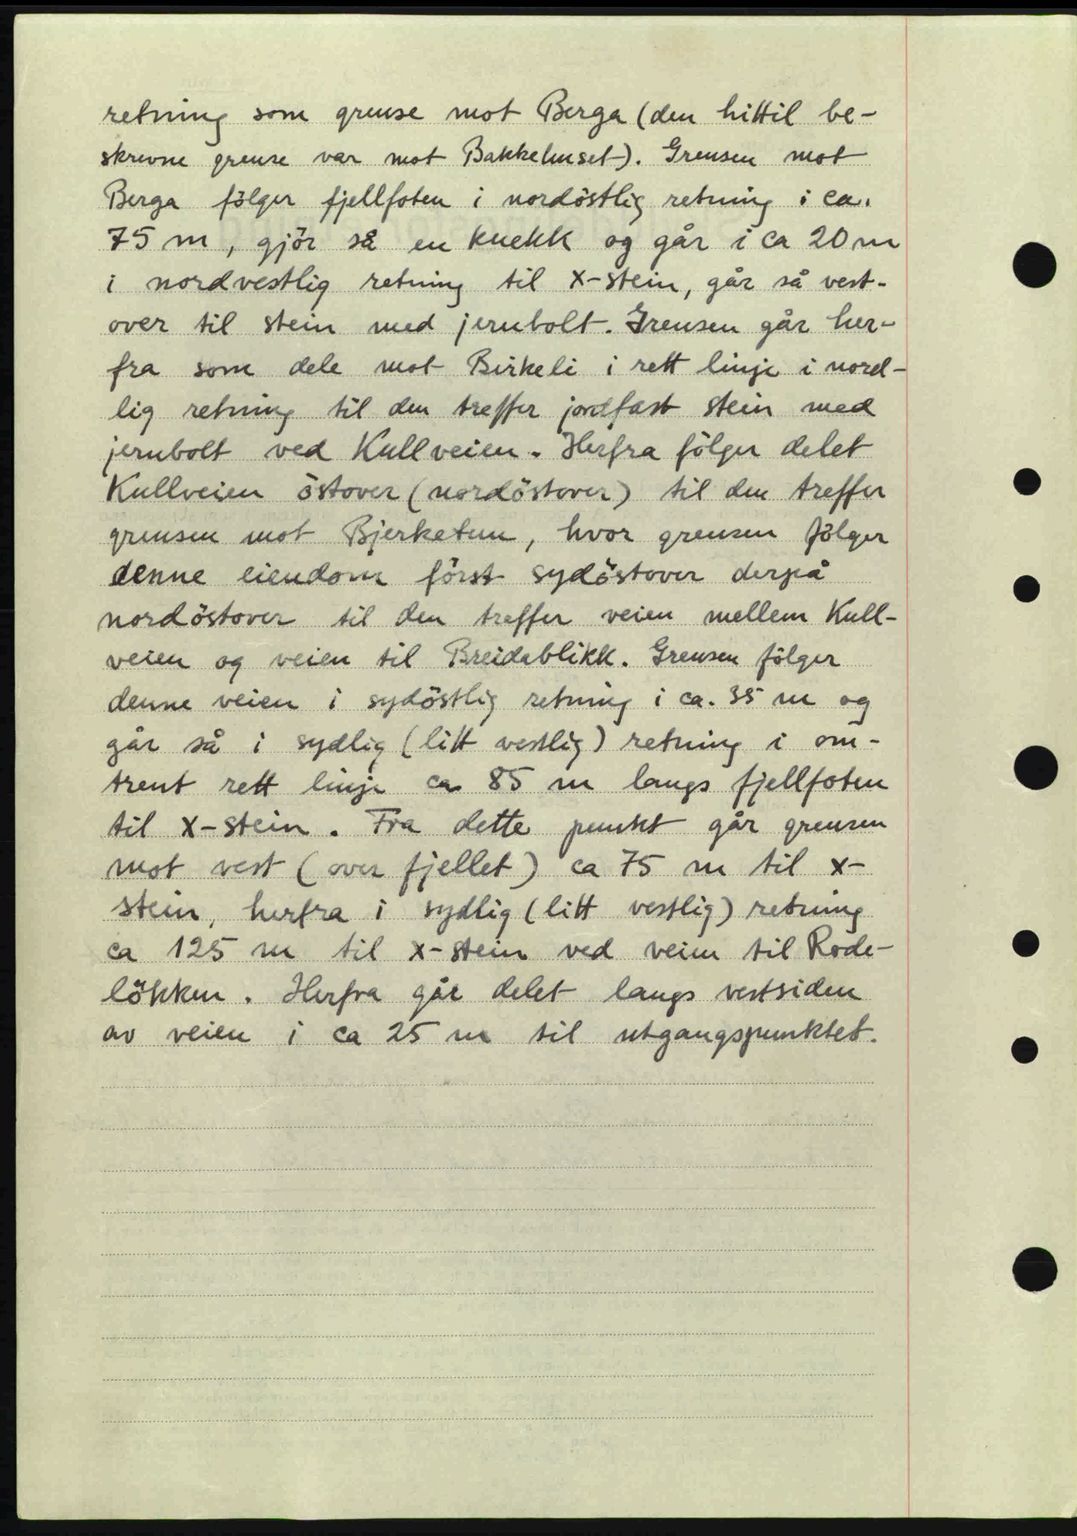 retning som grense mot Berga (den hittil be-
skrevne grense var mot Bakkehuset). Grensen mot
Berga fölger fjellfoten i nordöstlig retning i ca.
75 m, gjör så en knekk og går i ca 20 m
i nordvestlig retning til x-stein, går så vest-
over til stein med jernbolt. Grensen går her-
fra som dele mot Birkeli i rett linje i nord-
lig retning til den treffer jordfast stein med
jernbolt ved Kullveien. Herfra fölger delet
Kullveien östover (nordöstover) til den treffer
grensen mot Bjerketun, hvor grensen fölger
denne eiendom först sydöstover derpå
nordöstover til den treffer veien mellem Kull-
veien og veien til Breidablikk. Grensen fölger
denne veien i sydöstlig retning i ca. 35 m og
går så i sydlig (litt vestlig) retning i om-
trent rett linje ca 85 m langs fjellfoten
til x-stein. Fra dette punkt går grensen
mot vest (over fjellet) ca 75 m til x-
stein, herfra i sydlig (litt vestlig) retning
ca 125 m til x-stein ved veien til Rode-
lökken. Herfra går delet langs vestsiden
av veien i ca 25 m til utgangspunktet.